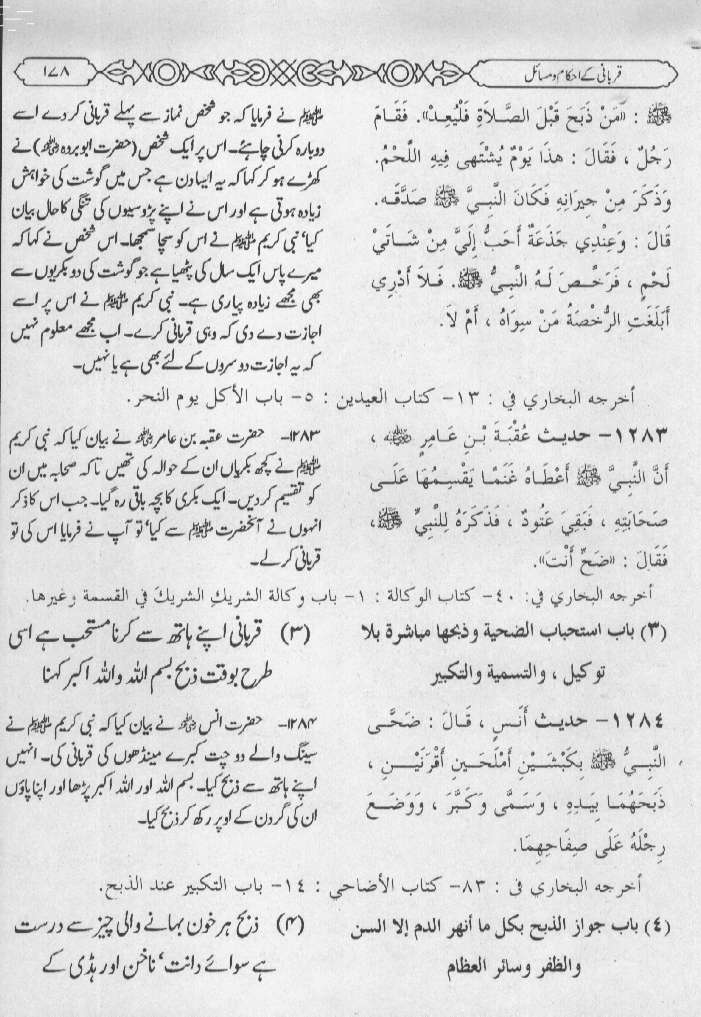 قربانی کے احکام و مسائل
۱۷۸
ﷺ : «مَنْ ذَبَحَ قَبْلَ الصَّلَاةِ فَلْيُعِدْ». فَقَامَ
رَجُلٌ ، فَقَالَ : هذَا يَوْمٌ يُشْتَهى فِيهِ اللَّحْمُ.
وَذَكَرَ مِنْ جِيرَانِهِ فَكَانَ النَّبِيَّ ﷺ صَدَّقَه.
قَالَ : وَعِنْدِي جَذَعَةٌ أَحَبُّ إِلَيَّ مِنْ شَاتَيْ
لَحْمٍ ، فَرَخَّصَ لَهُ النَّبِيُّ ﷺ. فَلاَ أَدْرِي
أَبَلَغَتِ الرُّخْصَةُ مَنْ سِوَاهُ ، أَمْ لاَ.
ﷺ نے فرمایا کہ جو شخص نماز سے پہلے قربانی کر دے اسے
دوبارہ کرنی چاہئے۔ اس پر ایک شخص (حضرت ابو بردہ رضی اللہ عنہ) نے
کھڑے ہو کر کہا کہ یہ ایسا دن ہے جس میں گوشت کی خواہش
زیادہ ہوتی ہے اور اس نے اپنے پڑوسیوں کی تنگی کا حال بیان
کیا‘ نبی کریم ﷺ نے اس کو سچا سمجھا۔ اس شخص نے کہا کہ
میرے پاس ایک سال کی پٹھیا ہے جو گوشت کی دو بکریوں سے
بھی مجھے زیادہ پیاری ہے۔ نبی کریم ﷺ نے اس پر اسے
اجازت دے دی کہ وہی قربانی کرے۔ اب مجھے معلوم نہیں
کہ یہ اجازت دوسروں کے لئے بھی ہے یا نہیں۔
أخرجه البخاري في : ١٣- كتاب العيدين : ٥- باب الأكل يوم النحر.
١٢٨٣- حديث عُقْبَةَ بْنِ عَامِرٍ رضی اللہ عنہ ،
أَنَّ النَّبِيَّ ﷺ أَعْطَاهُ غَنَمًا يَقْسِمُهَا عَلَى
صَحَابَتِهِ ، فَبَقِيَ عَتُودٌ ، فَذَكَرَهُ لِلنَّبِيِّ ﷺ،
فَقَالَ : «ضَحِّ أَنْتَ».
۱۲۸۳- حضرت عقبہ بن عامر رضی اللہ عنہ نے بیان کیا کہ نبی کریم
ﷺ نے کچھ بکریاں ان کے حوالہ کی تھیں تاکہ صحابہ میں ان
کو تقسیم کر دیں۔ ایک بکری کا بچہ باقی رہ گیا۔ جب اس کا ذکر
انہوں نے آنحضرت ﷺ سے کیا‘ تو آپ نے فرمایا اس کی تو
قربانی کر لے۔
أخرجه البخاري في: ٤٠- كتاب الوكالة : ١- باب وكالة الشريكِ الشريكَ في القسمة وغيرها.
(٣) باب استحباب الضحية وذبحها مباشرة بلا
توكيل ، والتسمية والتكبير
(۳) قربانی اپنے ہاتھ سے کرنا مستحب ہے اسی
طرح بوقت ذبح بسم اللہ واللہ اکبر کہنا
١٢٨٤- حديث أَنَسٍ ، قَالَ : ضَحَّى
النَّبِيُّ ﷺ بِكَبْشَيْنِ أَمْلَحَيْنِ أَقْرَنَيْنِ ،
ذَبَحَهُمَا بِيَدِهِ ، وَسَمَّى وَكَبَّرَ ، وَوَضَعَ
رِجْلَهُ عَلَى صِفَاحِهِمَا.
۱۲۸۴- حضرت انس رضی اللہ عنہ نے بیان کیا کہ نبی کریم ﷺ نے
سینگ والے دو چت کبرے مینڈھوں کی قربانی کی۔ انہیں
اپنے ہاتھ سے ذبح کیا۔ بسم اللہ اور اللہ اکبر پڑھا اور اپنا پاؤں
ان کی گردن کے اوپر رکھ کر ذبح کیا۔
أخرجه البخاري في : ٨٣- كتاب الأضاحي : ١٤- باب التكبير عند الذبح.
(٤) باب جواز الذبح بكل ما أنهر الدم إلا السن
والظفر وسائر العظام
(۴) ذبح ہر خون بہانے والی چیز سے درست
ہے سوائے دانت‘ ناخن اور ہڈی کے